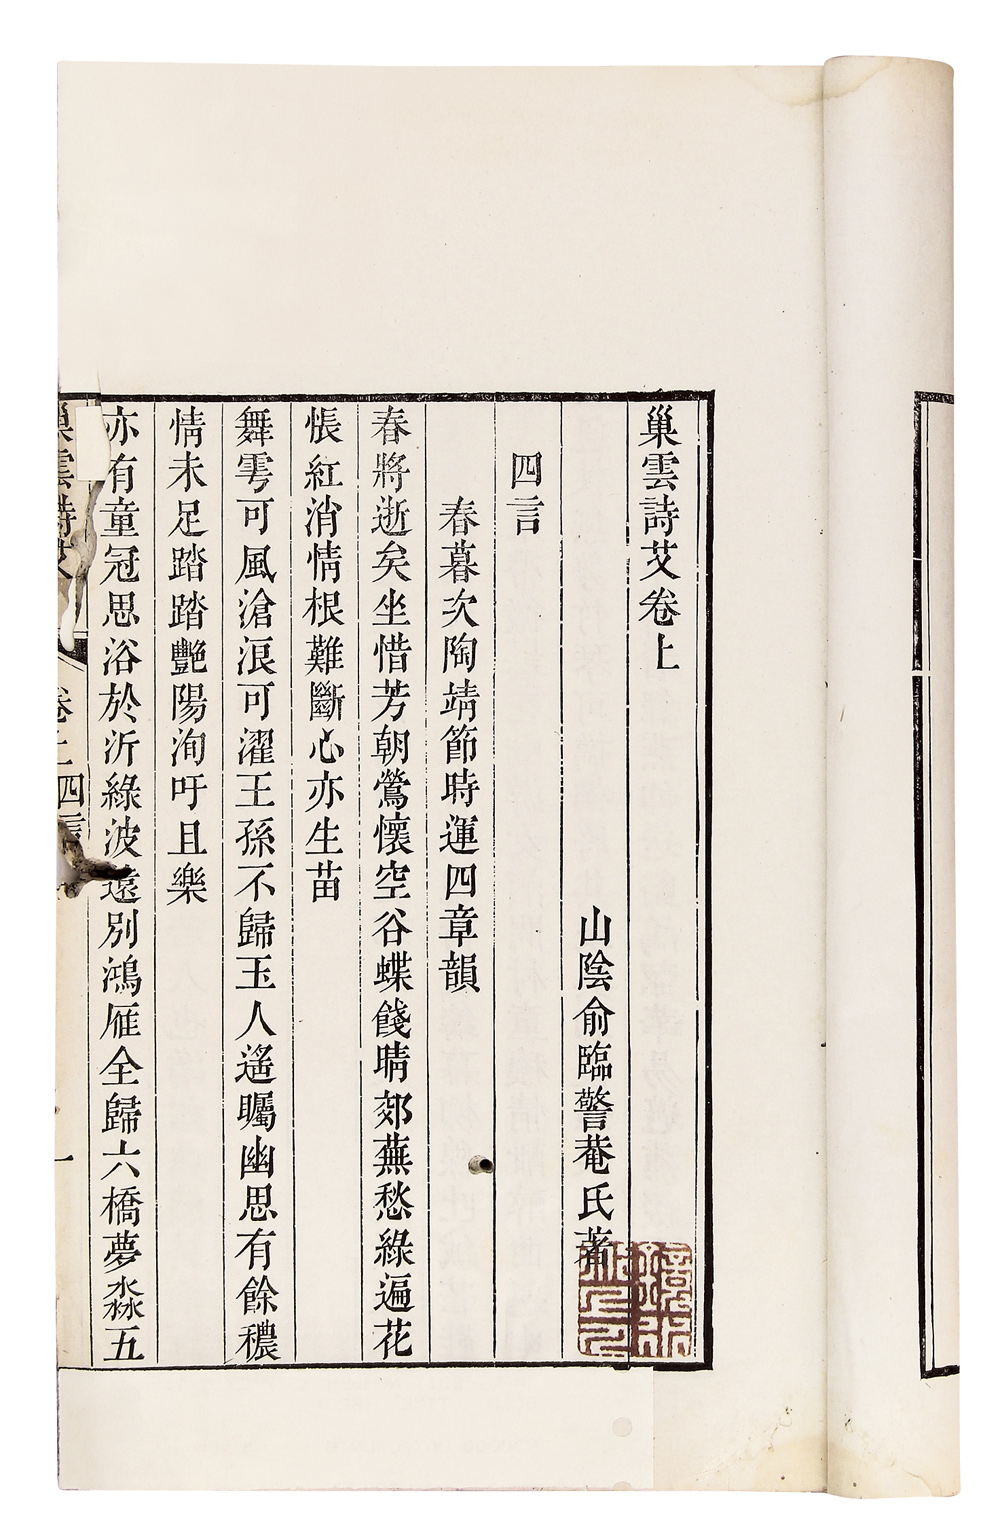 巢雲詩艾卷上
山陰俞臨警菴氏著
四言
春暮次陶靖節時運四章韻
春將逝矣坐惜芳朝鶯懷空谷蝶餞晴郊蕪愁綠遍花
悵紅消情根難斷心亦生苗
舞雩可風滄浪可濯王孫不歸玉人遙矚幽思有餘穠
情未足踏踏艷陽洵吁且樂
亦有童冠思浴於沂綠波遠別鴻雁全歸六橋夢淼五
巢雲詩艾 卷上 四言 一